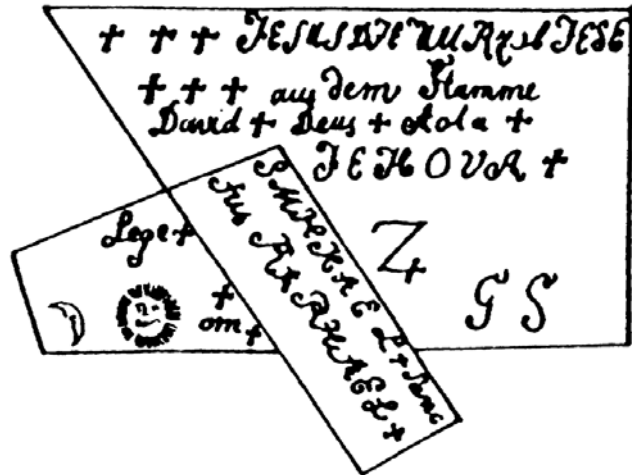 + + + JESUS DIE WURzel JESE
+ + + aus dem Stamme
David + Deus + Aola +
JEHOVA +
Lege +
+
om +
SMIHHAEL + Sanc
Tus RAPHAEL +
Z+
G S